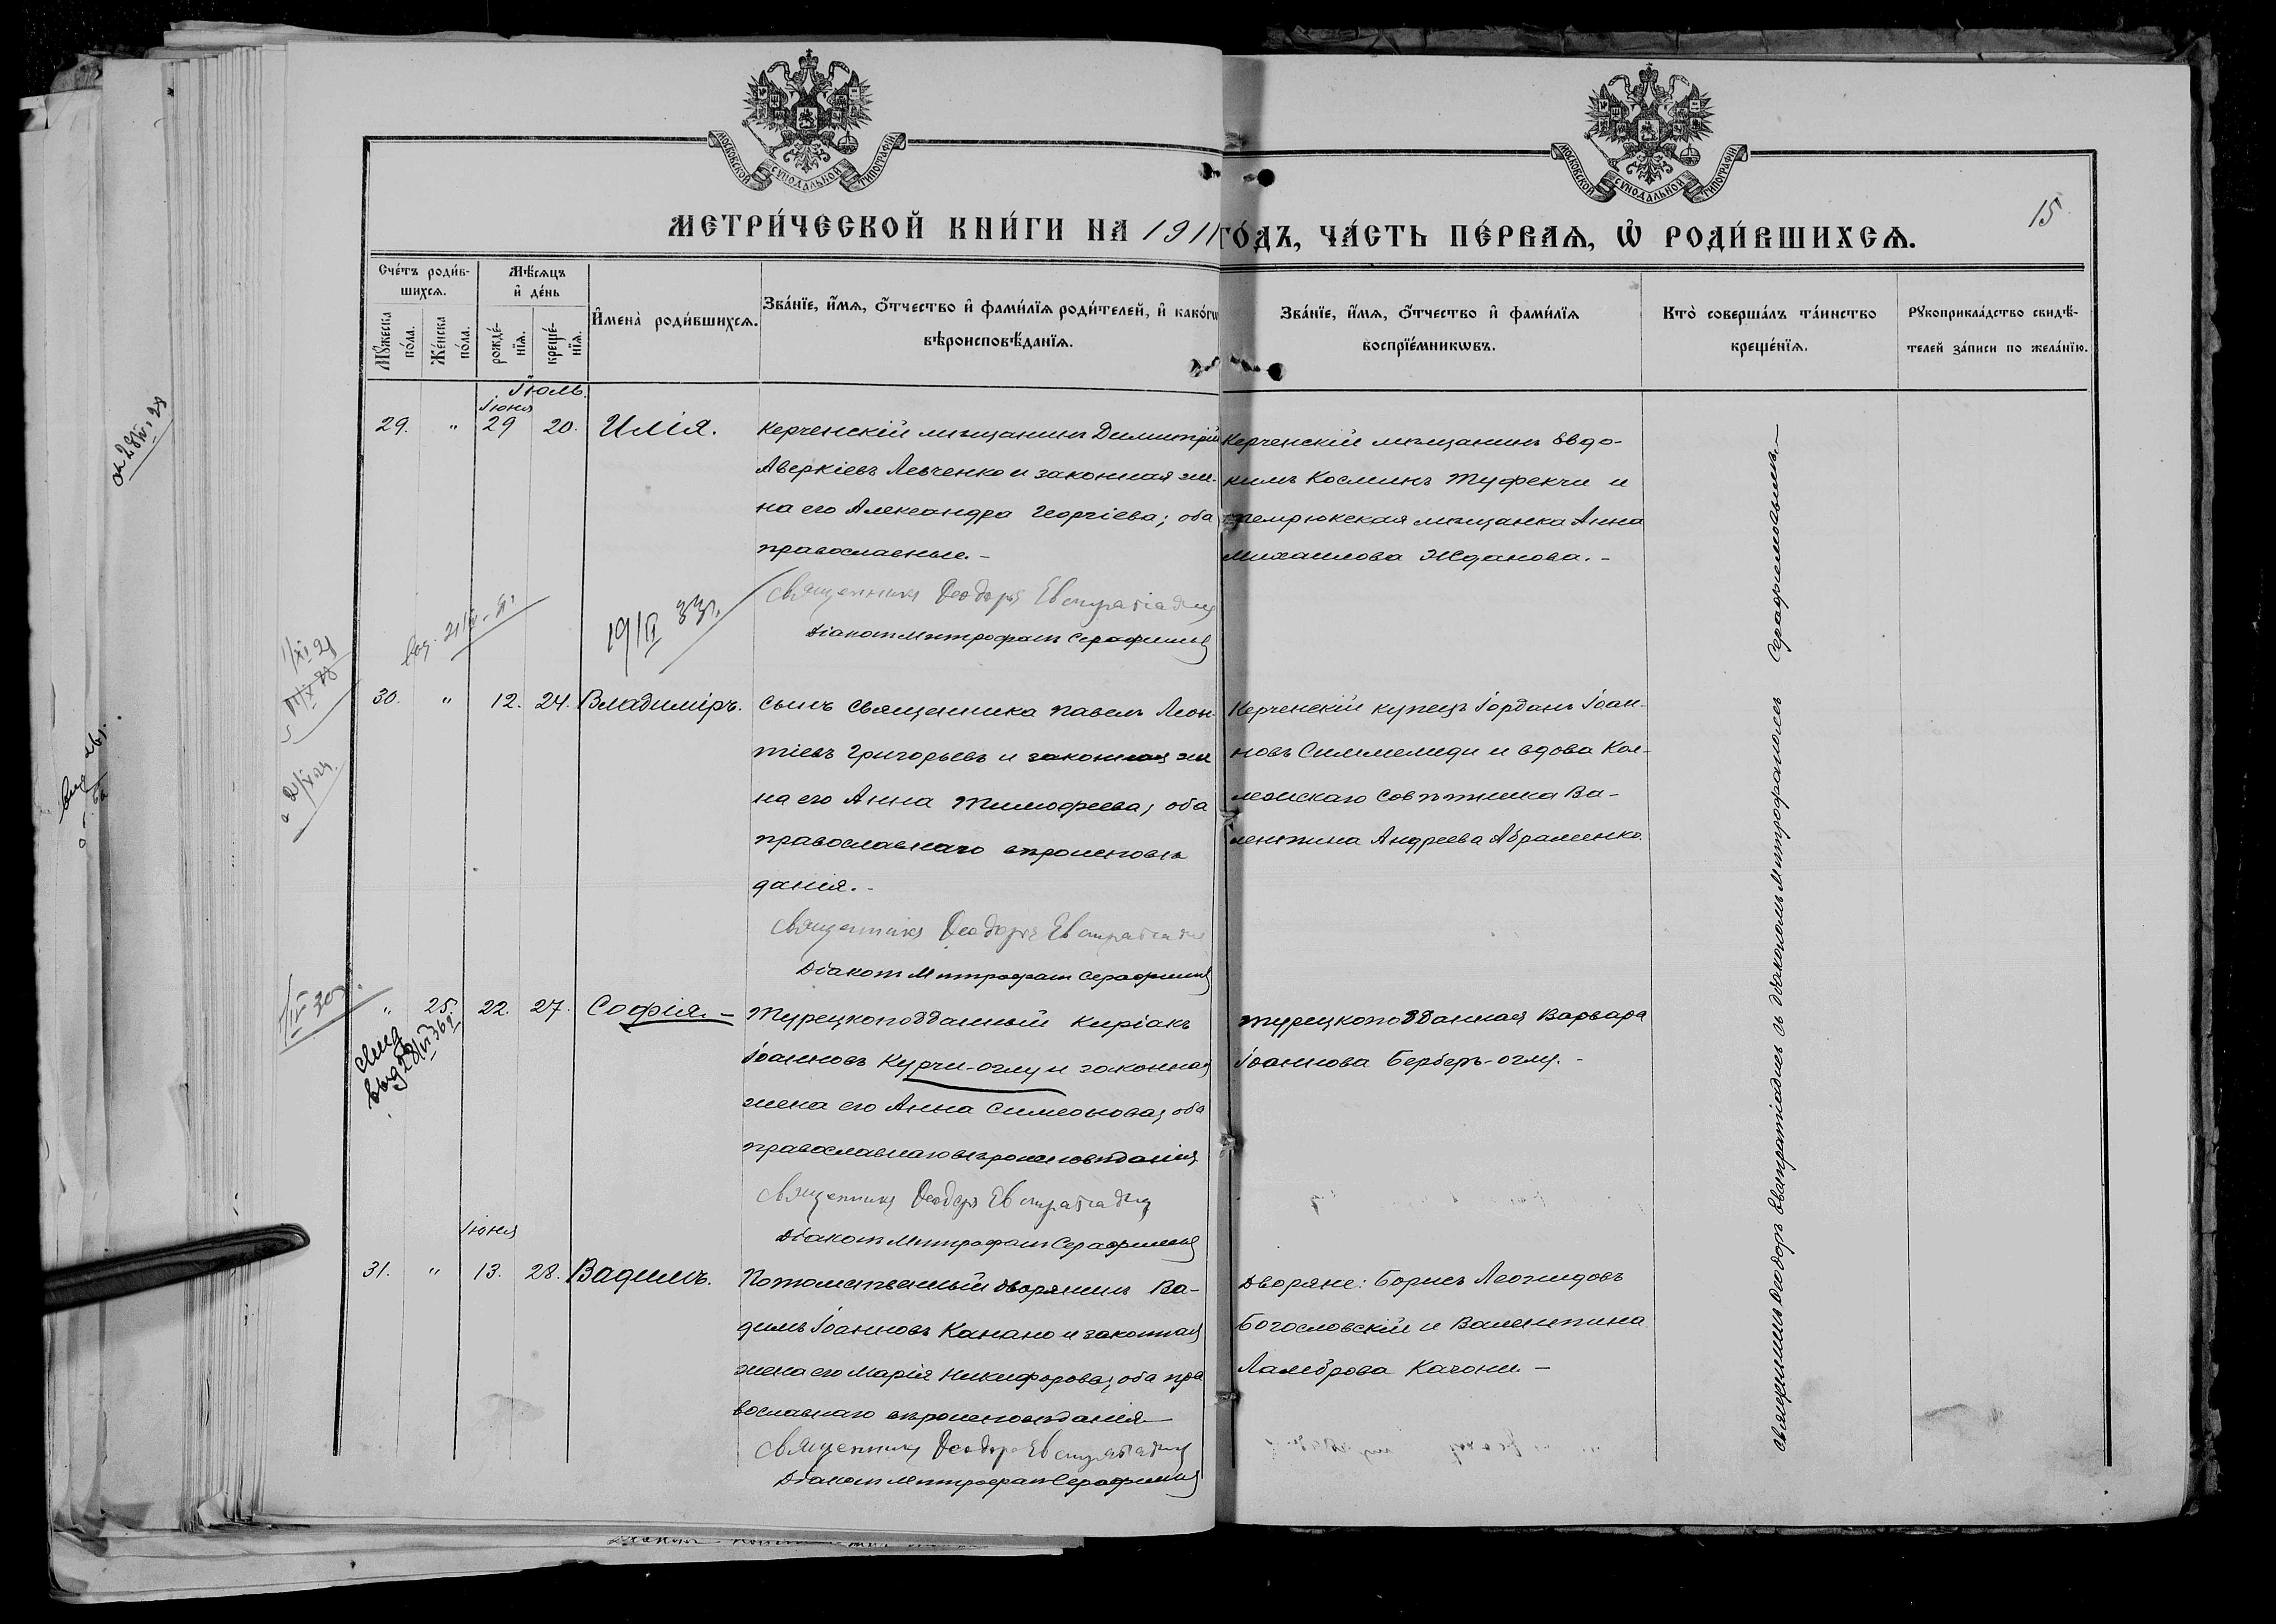 МОСКОВСКОЙ СУНОДАЛЬНОЙ ТИПОГРАФІИ
МОСКОВСКОЙ СУНОДАЛЬНОЙ ТИПОГРАФІИ
15
МЕТРИ́ЧЕСКОЙ КНИ́ГИ НА 1911 ГО́ДЪ, ЧА́СТЬ ПЕ́РВАѦ, Ѡ҆ РОДИ́ВШИХСѦ.
Сче́тъ роди́в-
шихсѧ.
Мꙋ́жеска по́ла.
Же́нска по́ла.
Мѣ́сѧцъ и҆ де́нь
рожде́-
нїѧ.
креще́-
нїѧ.
И҆мена̀ роди́вшихсѧ.
Зва́нїе, и҆́мѧ, ѻ҆́тчество и҆ фами́лїѧ роди́телей, и҆ како́гѡ
вѣроисповѣ́данїѧ.
Зва́нїе, и҆́мѧ, ѻ҆́тчество и҆ фами́лїѧ
воспрїе́мникѡвъ.
Кто̀ соверша́лъ та́инство
креще́нїѧ.
Рꙋкоприкла́дство свидѣ́-
телей за́писи по жела́нїю.
Іюль.
Іюня
29. " 29 20. Илія.
Керченскій мѣщанинъ Димитрій
Аверкіевъ Левченко и законная же-
на его Александра Георгіева; оба
православные. -
Священникъ Ѳеодоръ Евстратіадис
Діаконъ Митрофанъ Серафимов
Керченскій мѣщанинъ Евдо-
кимъ Космынъ Туфекчи и
темрюкская мѣщанка Анна
Михаилова Жданова. -
30. " 12. 24. Владиміръ.
Сынъ священника Павелъ Леон-
тіевъ Григорьевъ и законная же
на его Анна Тимофеева; оба
православнаго вѣроисповѣ
данія. -
Священникъ Ѳеодоръ Евстратіадис
Діаконъ Митрофанъ Серафимов
Керченскій купецъ Іорданъ Іоан-
новъ Симмелиди и вдова Кол-
лежскаго Совѣтника Ва-
лентина Андреева Абраменко.
" 25. 22. 27. Софія. -
Турецкоподданный Киріакъ
Іоанновъ Курчи-оглу и законная
жена его Анна Симеонова; оба
православнаго вѣроисповѣданія
Священникъ Ѳеодоръ Евстратіадис
Діаконъ Митрофанъ Серафимов
Турецкоподданная Варвара
Іоаннова Берберъ-оглу. -
Іюня
31. " 13. 28. Вадимъ.
Потомственный дворянинъ Ва-
димъ Іоанновъ Канано и законная
жена его Марія Никифорова; оба пра
вославнаго вѣроисповѣданія
Священникъ Ѳеодоръ Евстратіадис
Діаконъ Митрофанъ Серафимов
Дворяне: Борисъ Леонидовъ
Богословскій и Валентина
Ламброва Качони -
Священникъ Ѳеодоръ Евстратіадисъ и діакономъ Митрофаномъ Серафимовымъ
19/IX 33г.